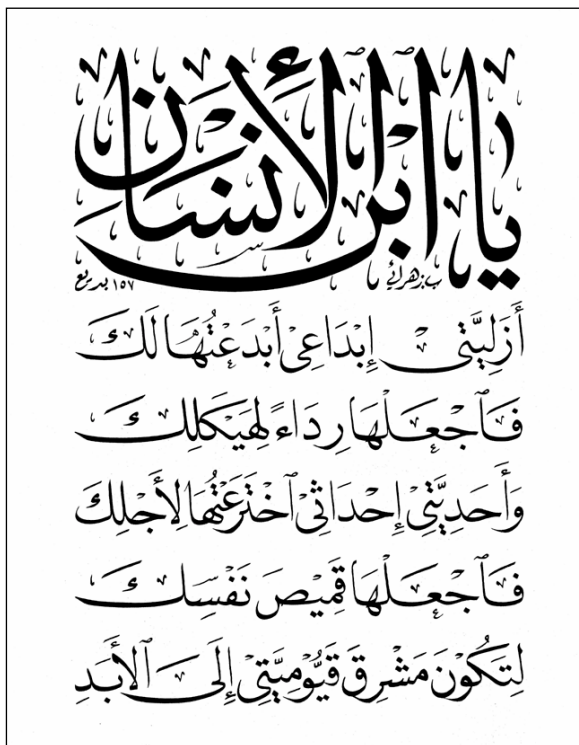 يا ابن الأنسان
ب. زهرائی ١٥٧ بدیع
أَزَلِيَّتىْ إِبْدَاعِىْ أَبْدَعْتُهَا لَكَ
فَٱجْعَلْهَا رِدَاءً لِهَيْكَلِكَ
وَأَحَدِيَّتِىْ إِحْدَاثِىْ ٱخْتَرَعْتُهَا لِأَجْلِكَ
فَٱجْعَلْهَا قَمِيْصَ نَفْسِكَ
لِتَكُوْنَ مَشْرِقَ قَيُّوْمِيَّتِىْ إِلَى ٱلأَبَدِ